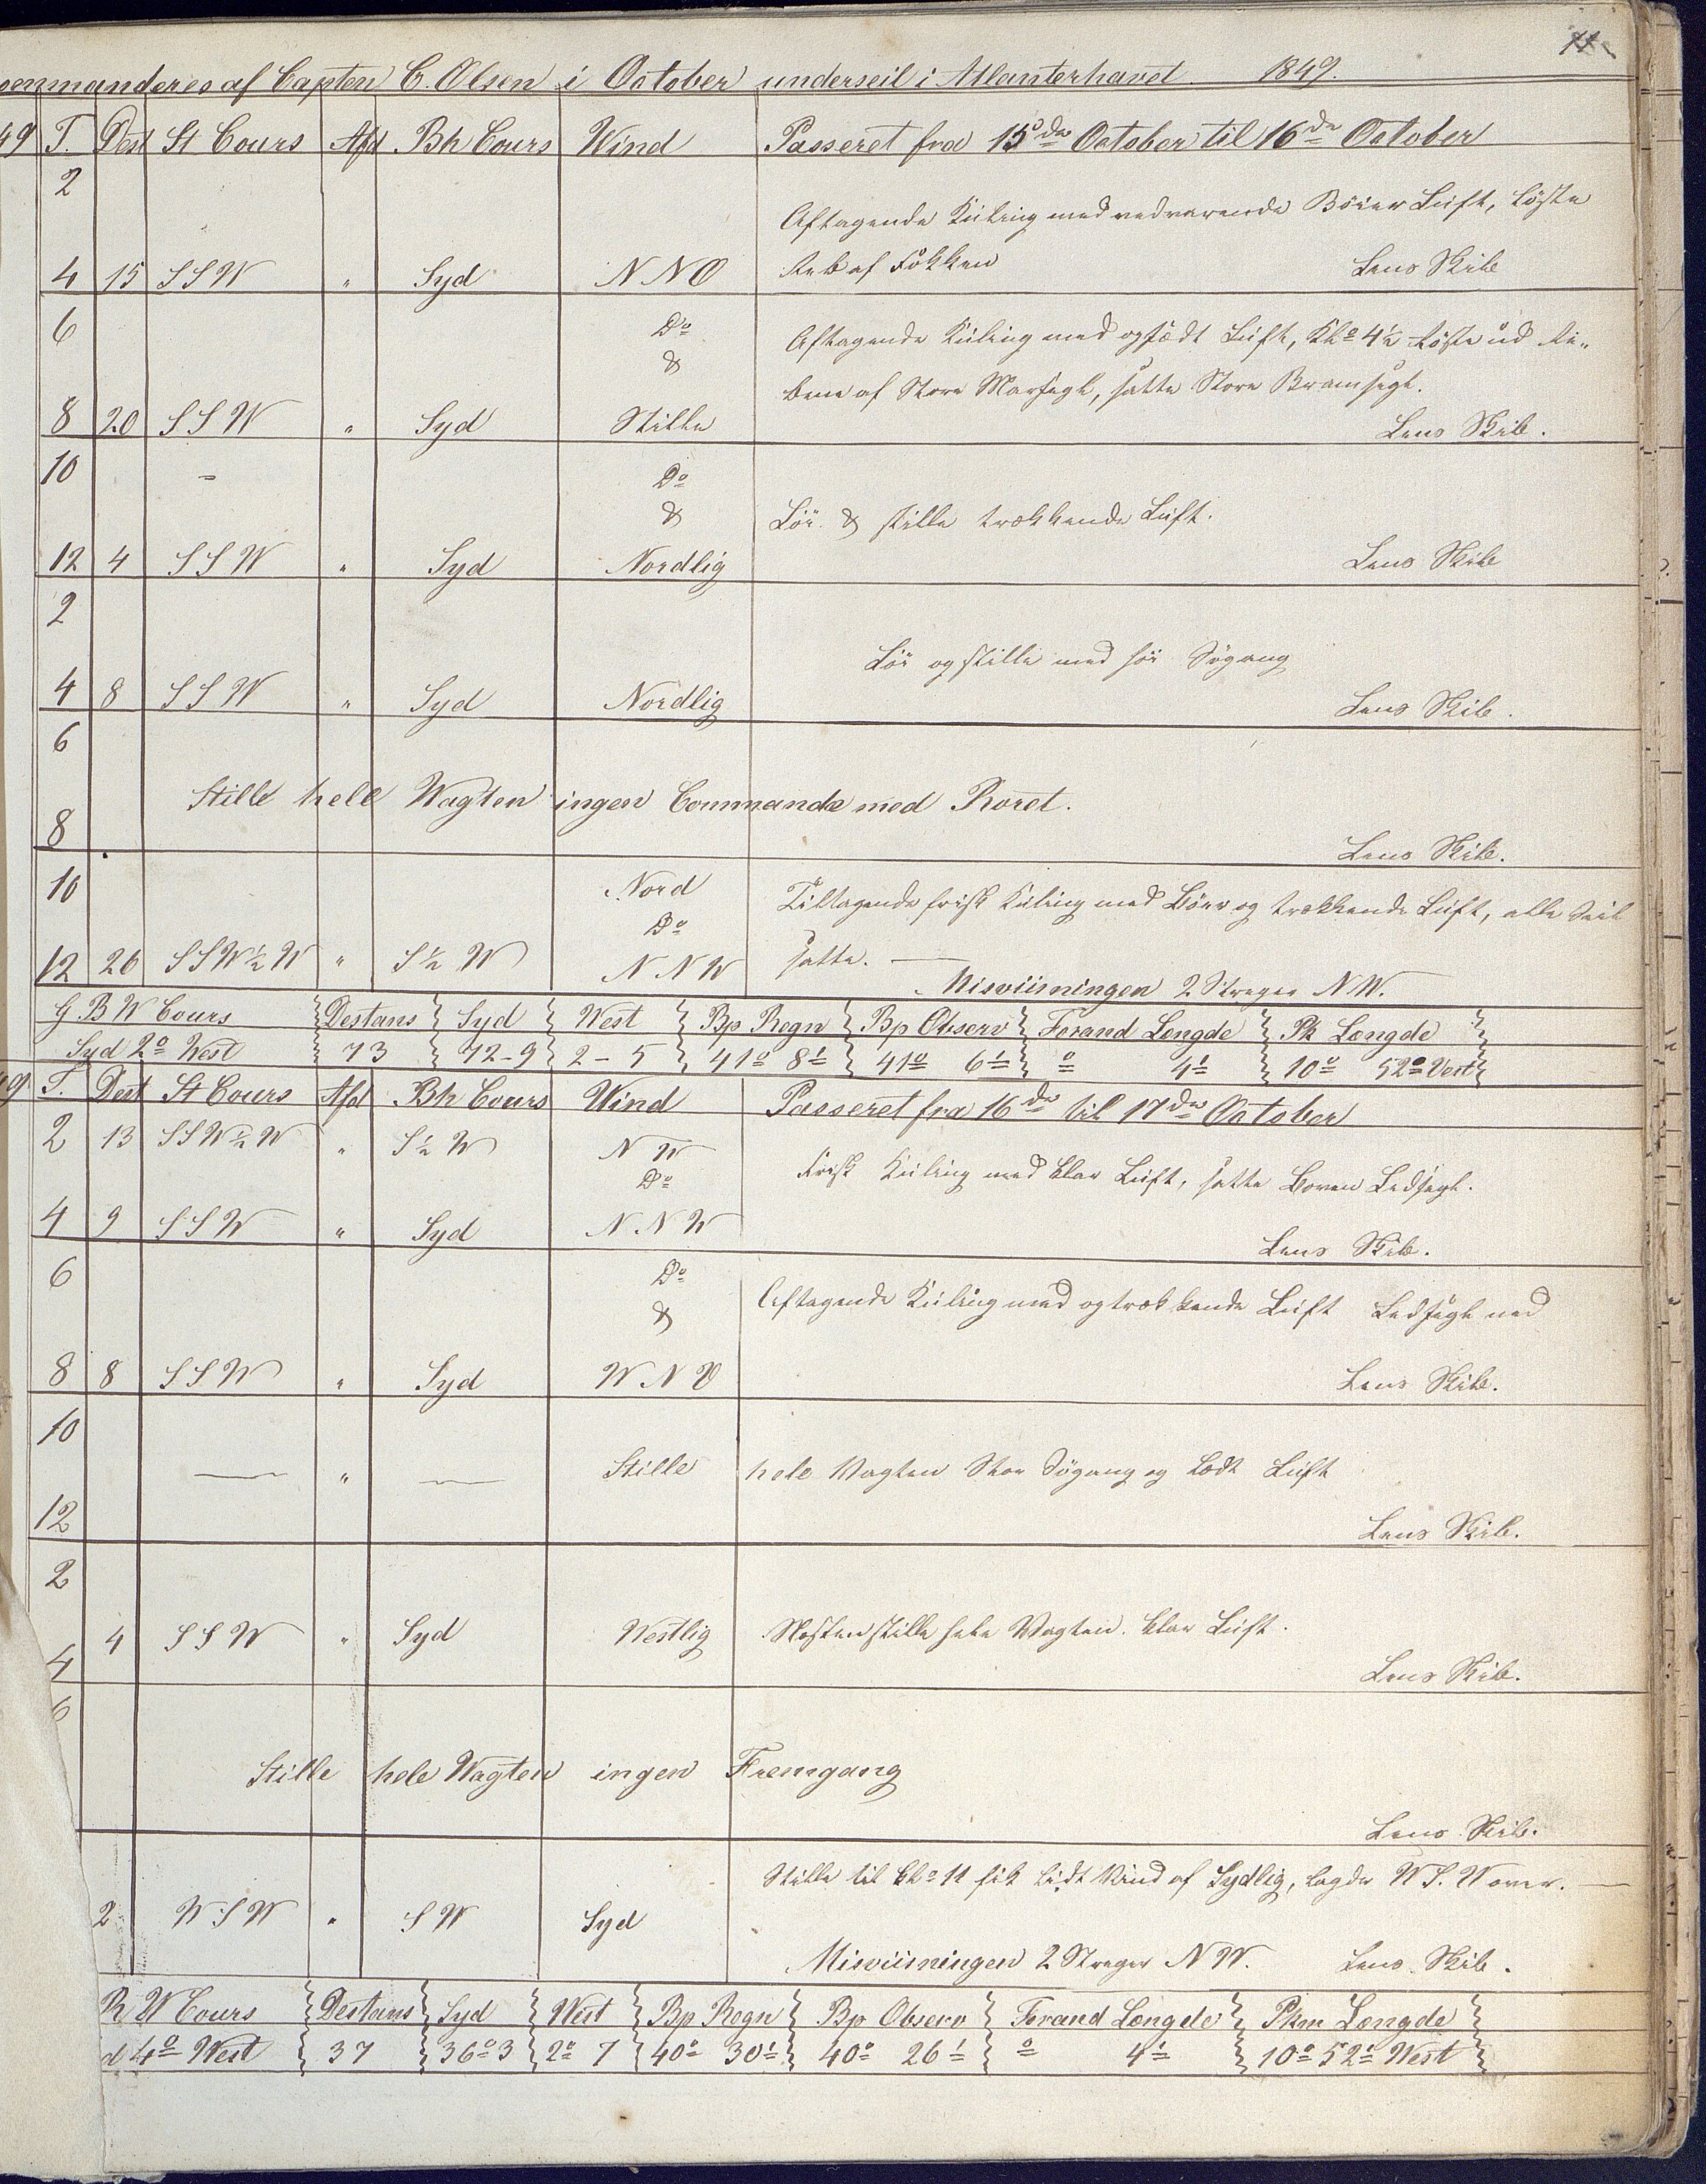 11
commanderes af Capten C. Olsen i October underseil i Atlanterhavet 1849.
49 T. Dest St Cours Afd Bh Cours Wind Passeret fra 15de October til 16de October
2
Aftagende Kuling med vedvarende Böier Luft, löste
4 15 SSW " Syd NNO Reb af Fokken Lens Skib
6 Do Aftagende Kuling med opklædt Luft, Klo 4½ löste ud Re„
& bene af Store Mersegl, satte Store Bramsegl.
8 20 SSW " Syd Stille Lens Skib.
10 - Do
& Löi & stille trækkende Luft.
12 4 SSW " Syd Nordlig Lens Skib
2
Löi og stille med höi Sögang
4 8 SSW " Syd Nordlig Lens Skib.
6
Stille hele Wagten ingen Commando med Roret.
8
Lens Skib.
10 Nord Tiltagende frisk Kuling med Böer og trækkende Luft, alle Seil
Do
12 26 SSW½W " S½W NNW satte.
Misviisningen 2 Streger NW.
G B W Cours Destans Syd West Bp Regn Bp Observ Forand Længde Pk Længde
Syd 2° West 73 72-9 2-5 41° 8' 41° 6' ° 4' 10° 52° Vest
49 T. Dest St Cours Afd Bh Cours Wind Passeret fra 16de til 17de October
2 13 SSW½W " S½W NW
Do Frisk Kuling med klar Luft, satte Boven Ledsegl.
4 9 SSW " Syd NNW
Lens Skib.
6 Do Aftagende Kuling med og trækkende Luft Ledsegl ned
&
8 8 SSW " Syd WNW Lens Skib.
10
" Stille hele Vagten Stor Sögang og Lödt Luft
12
Lens Skib.
2
4 SSW " Syd Westlig Næsten stille hele Vagten. klar Luft.
4
Lens Skib.
6
Stille hele Wagten ingen Fremgang
Lens Skib.
Stille til Klo 11 fik lidt Vind af Sydlig, lagde WSW over.
2 WSW " SW Syd
Misviisningen 2 Streger NW. Lens Skib.
R W Cours Destans Syd West Bp Regn Bp Observ Forand Længde Pkm Længde
d 4° West 37 36° 3 2° 7 40° 30' 40° 26' ° 4' 10° 52' West